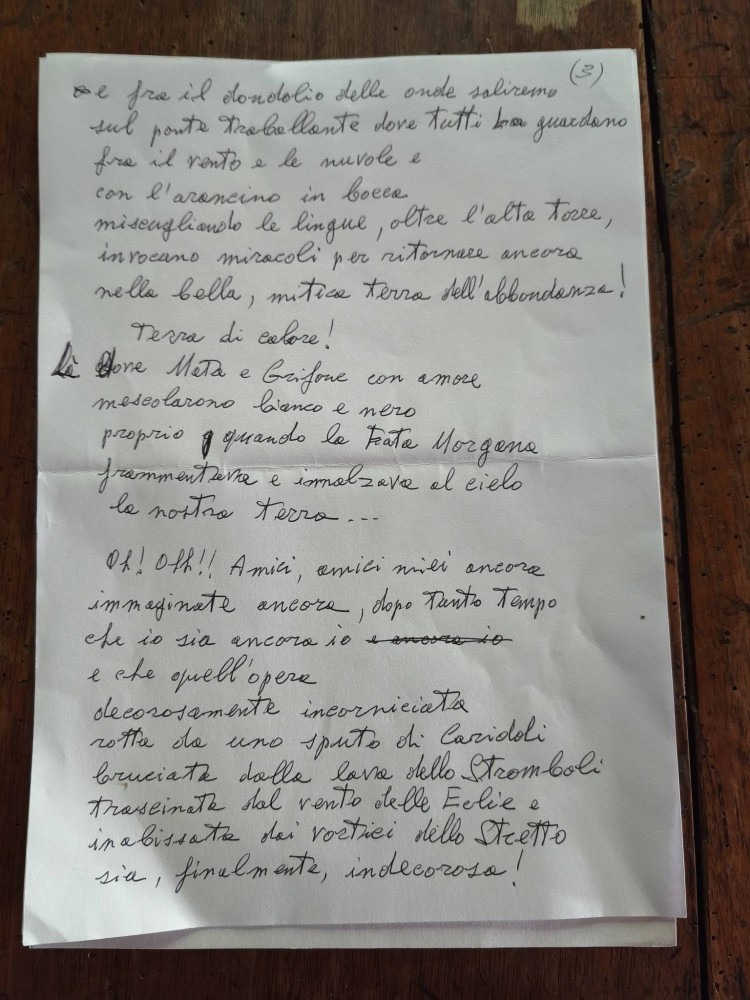 (3)
e fra il dondolio delle onde saliremo
sul ponte traballante dove tutti guardano
fra il vento e le nuvole e
con l'arancino in bocca
miscugliando le lingue, oltre l'alta torre,
invocano miracoli per ritornare ancora
nella bella, mitica terra dell'abbondanza!
Terra di calore!
Là dove Mata e Grifone con amore
mescolarono bianco e nero
proprio quando la Fata Morgana
frammentava e innalzava al cielo
la nostra terra...
Oh! Ohh!! Amici, amici miei ancora
immaginate ancora, dopo tanto tempo
che io sia ancora io e ancora io
e che quell'opera
decorosamente incorniciata
rotta da uno sputo di Cariddi
bruciata dalla lava dello Stromboli
trascinata dal vento delle Eolie e
inabissata dai vortici dello Stretto
sia, finalmente, indecorosa!